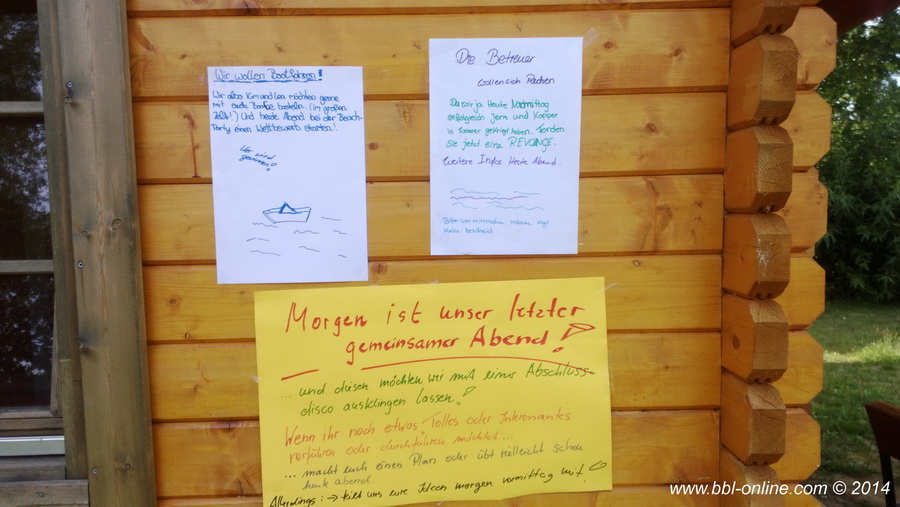 Wir wollen Bootfahren!
Wir also Kim und Lea möchten gerne
mit euch Boote basteln. (im großen
Zelt!) Und heute Abend bei der Beach-
Party einen Wettbewerb starten!
Wer wird
gewinnen?
Die Betreuer
wollen sich Rächen
Da wir ja Heute Nachmittag
erfolgreich Jens und
in gekriegt haben, fordern
sie jetzt eine REVANGE.
Weitere Infos Heute Abend.
Bitte wer mitmachen möchte sagt
bescheid.
Morgen ist unser letzter
gemeinsamer Abend!
... und diesen möchten wir mit einer Abschluss-
disco ausklingen lassen!
Wenn ihr noch etwas Tolles oder Interessantes
vorführen oder durchführen möchtet...
... macht euch einen Plan oder übt vielleicht schon
heute abend
Allerdings: → teilt uns eure Ideen morgen vormittag mit!
www.bbl-online.com © 2014